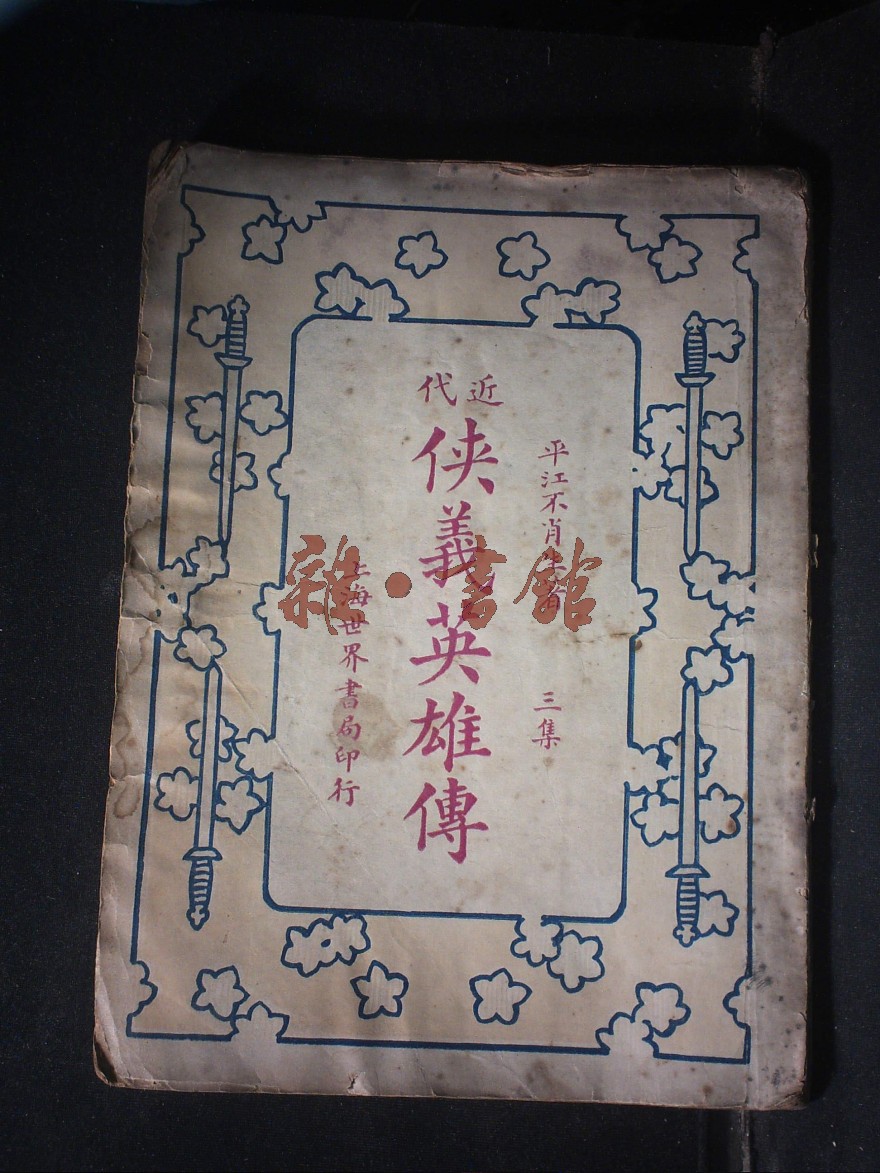 近代
平江不肖生著
三集
俠義英雄傳
上海世界書局印行
雜·書館